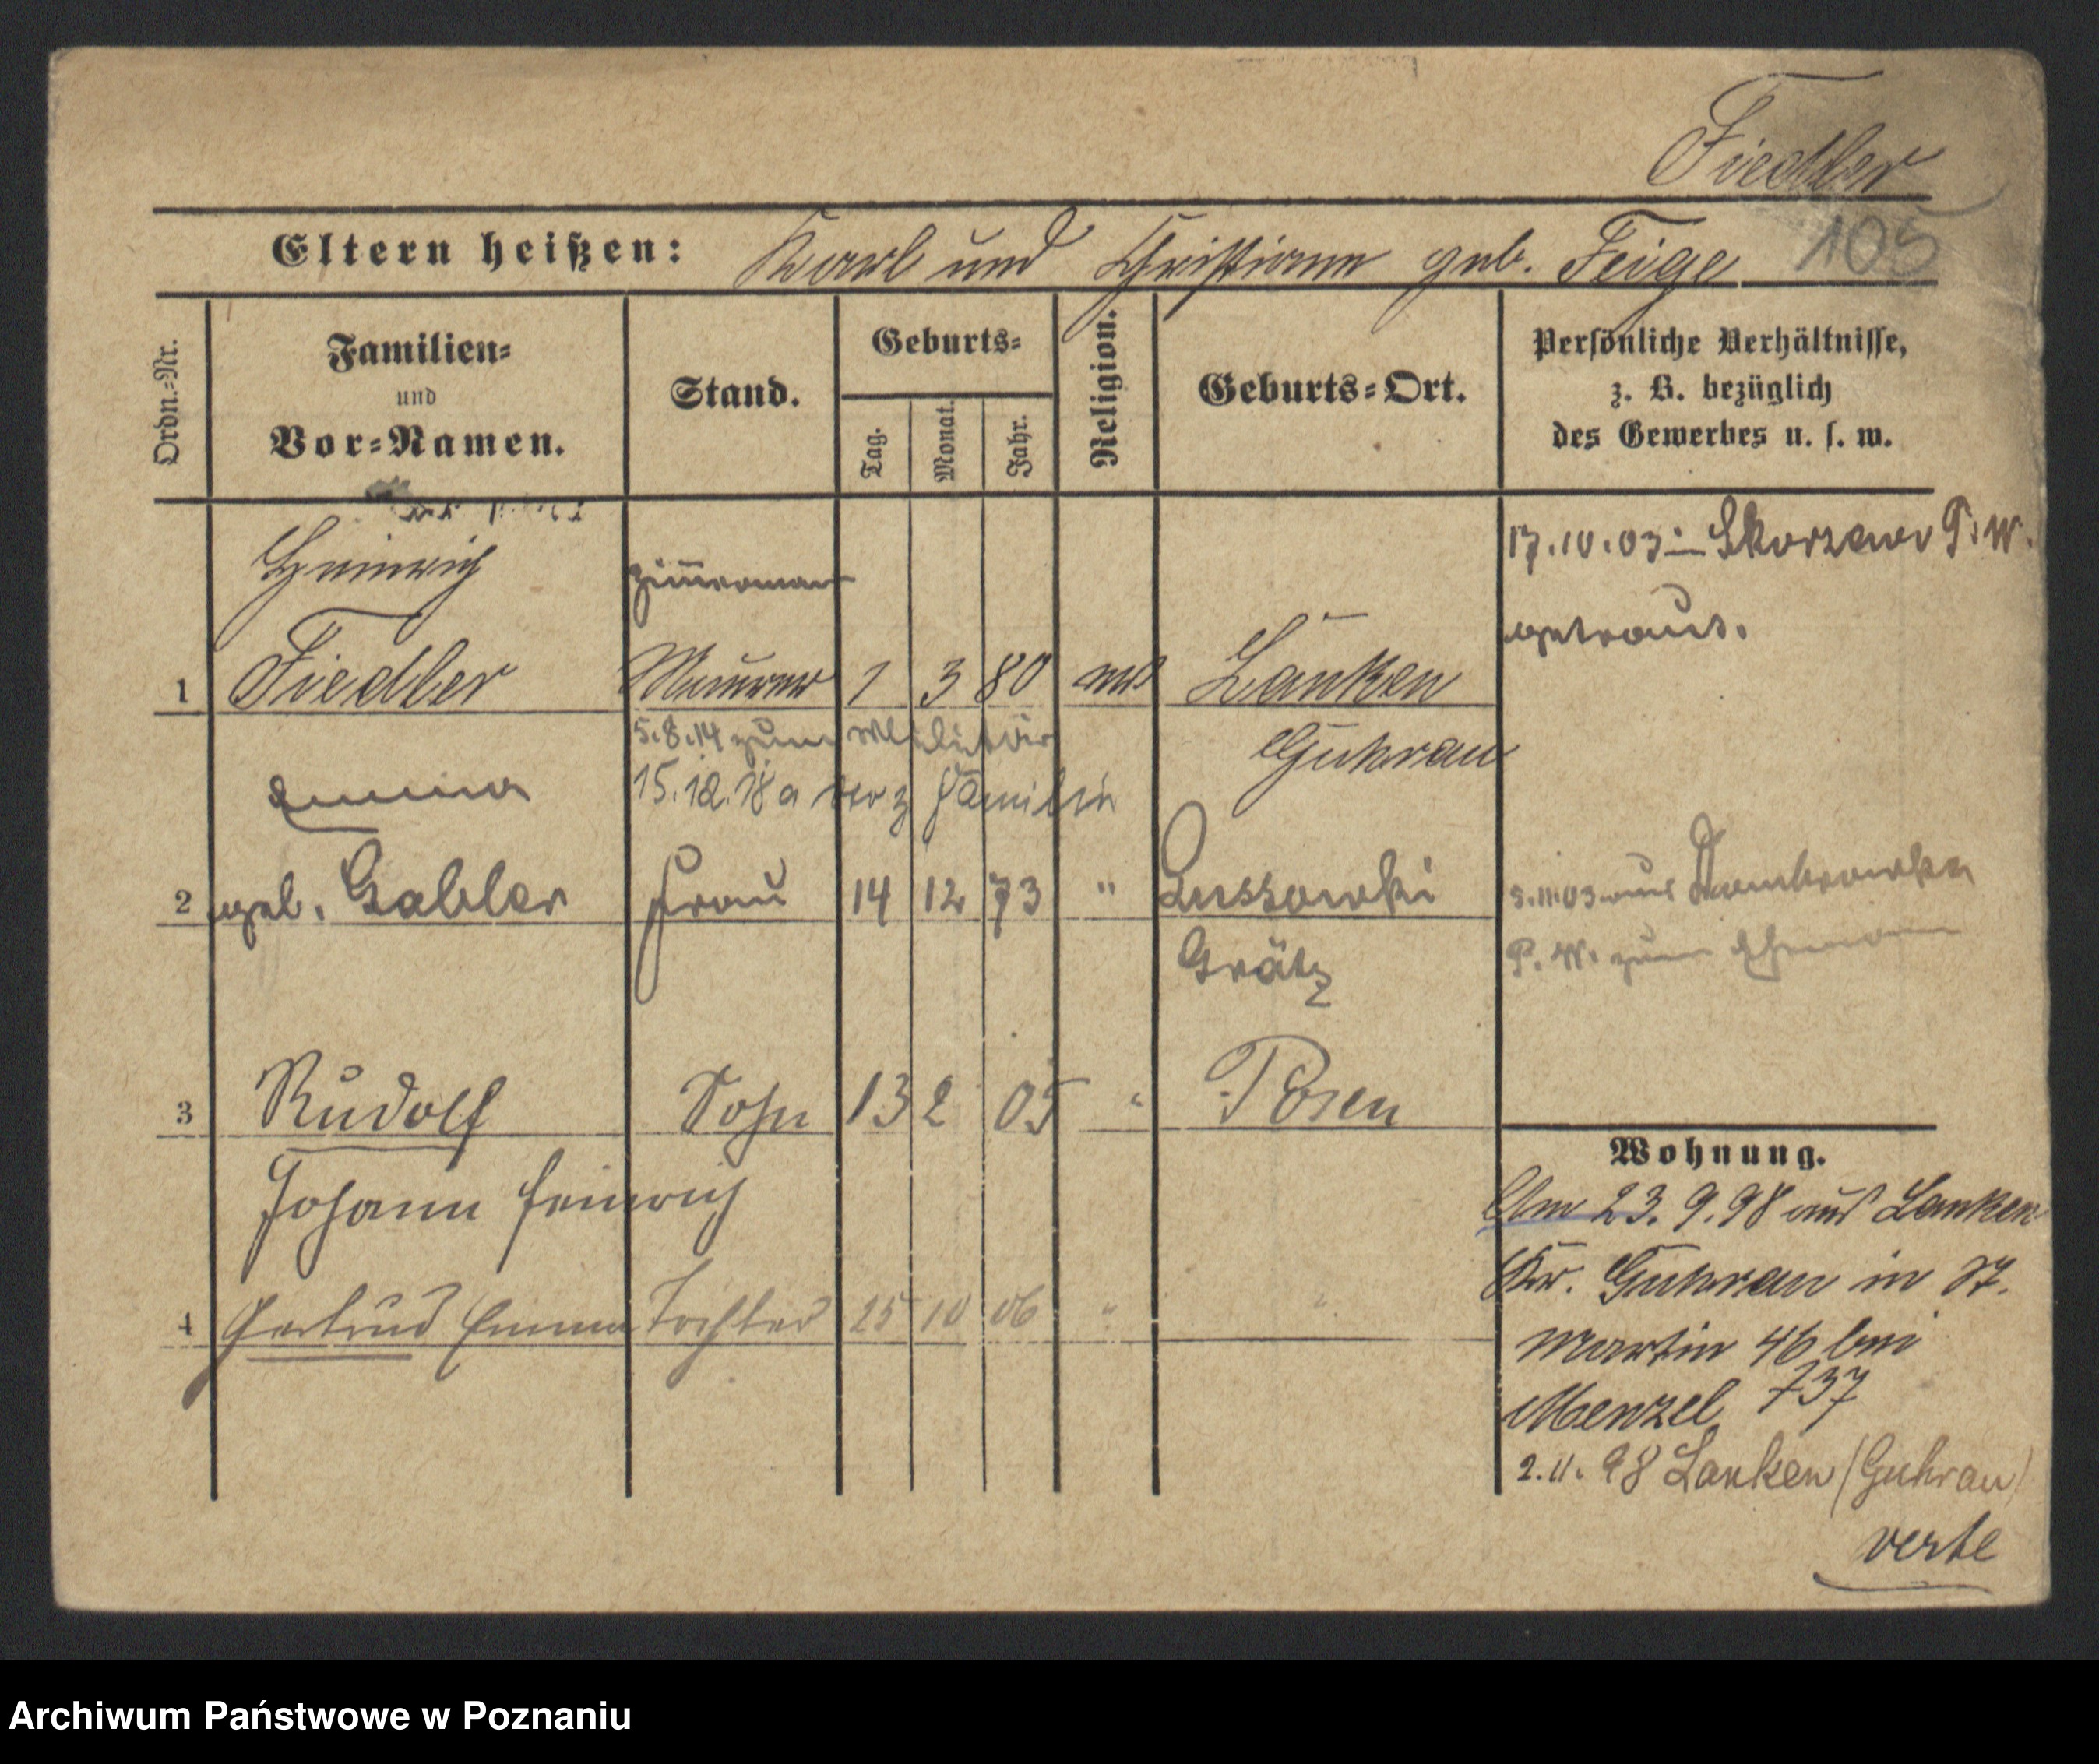 Fiedler
105
Eltern heißen: Karl und Christiane geb. Feige
Ordn.=Nr.
Familien=
und
Vor=Namen.
Stand.
Geburts=
Tag.
Monat.
Jahr.
Religion.
Geburts=Ort.
Persönliche Verhältnisse,
z. B. bezüglich
des Gewerbes u. s. w.
Heinrich
Zimmerman
17.10.03 in P. W.
getraut.
1 Fiedler Maurer 1 3 80 Lanken
5.8.14 zum Militär
Guhrau
15.12.18 a Familie
Emma
2 geb. Gabler Frau 14 12 73 " Lussowki
Grätz
5.11.03 aus Dombrowka
P. W. zum Ehemann
3 Rudolf Sohn 13 2 05 " Posen
Johann Heinrich
4 Gertrud Emma Tochter 25 10 06 " "
Wohnung.
Am 23.9.98 aus Lanken
Kr. Guhrau in St.
Martin 46 bei
Menzel 737
2.11.98 Lanken (Guhrau)
verte
Archiwum Państwowe w Poznaniu